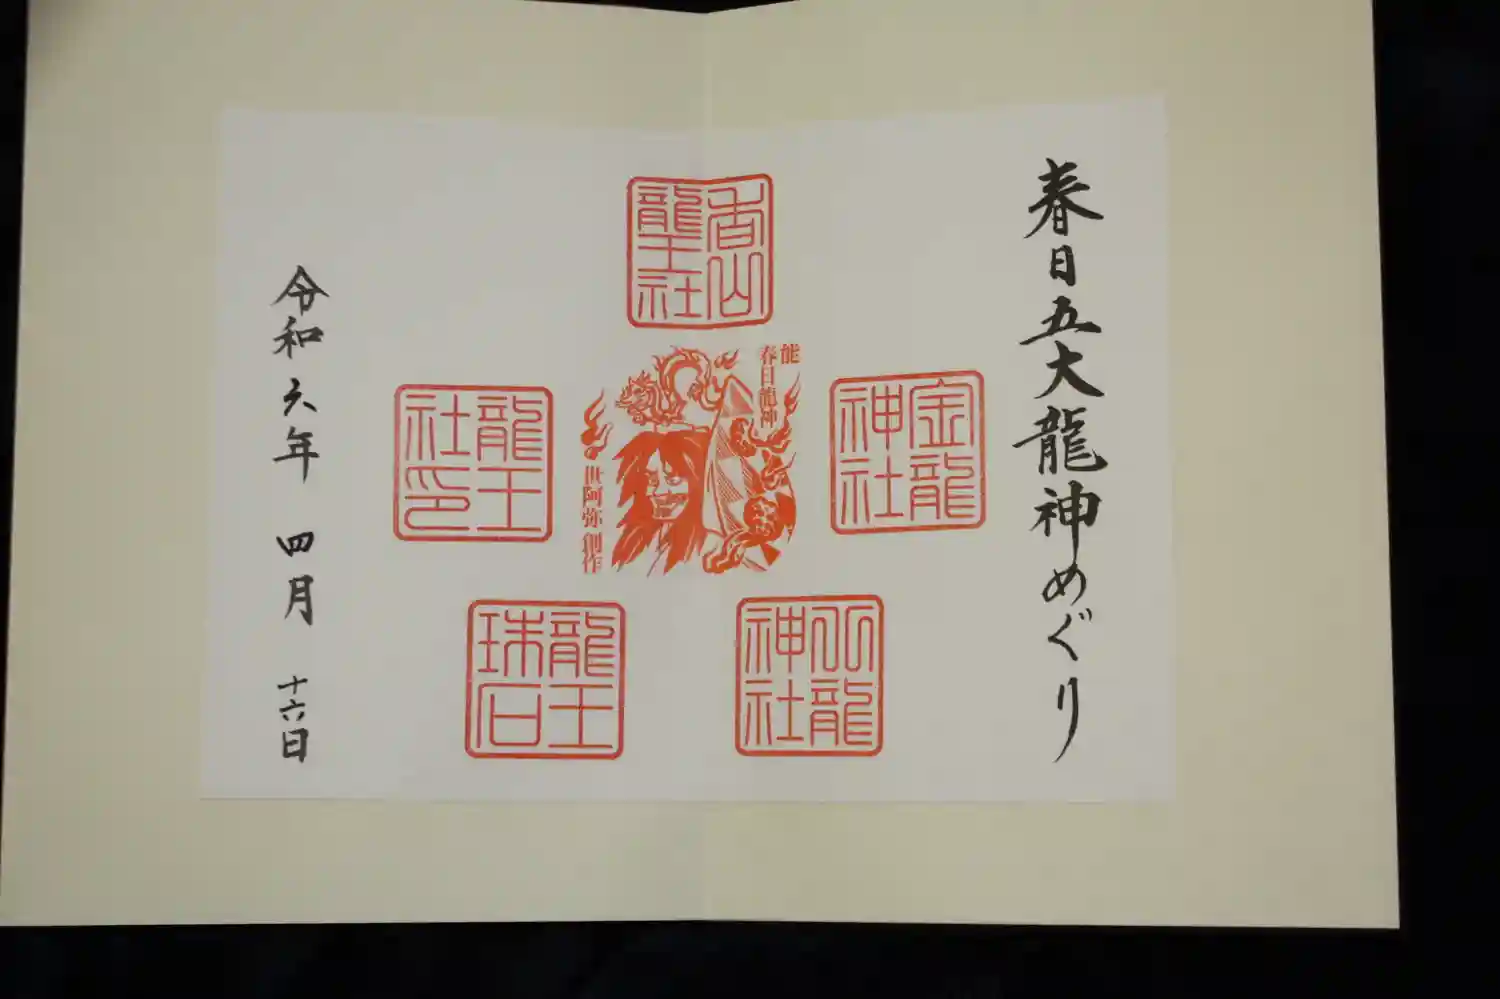 春日五大龍神めぐり
香山
龍王社
金龍
神社
能
春日龍神
世阿弥 創作
龍王
社印
龍
神社
龍王
珠石
令和六年 四月 十六日